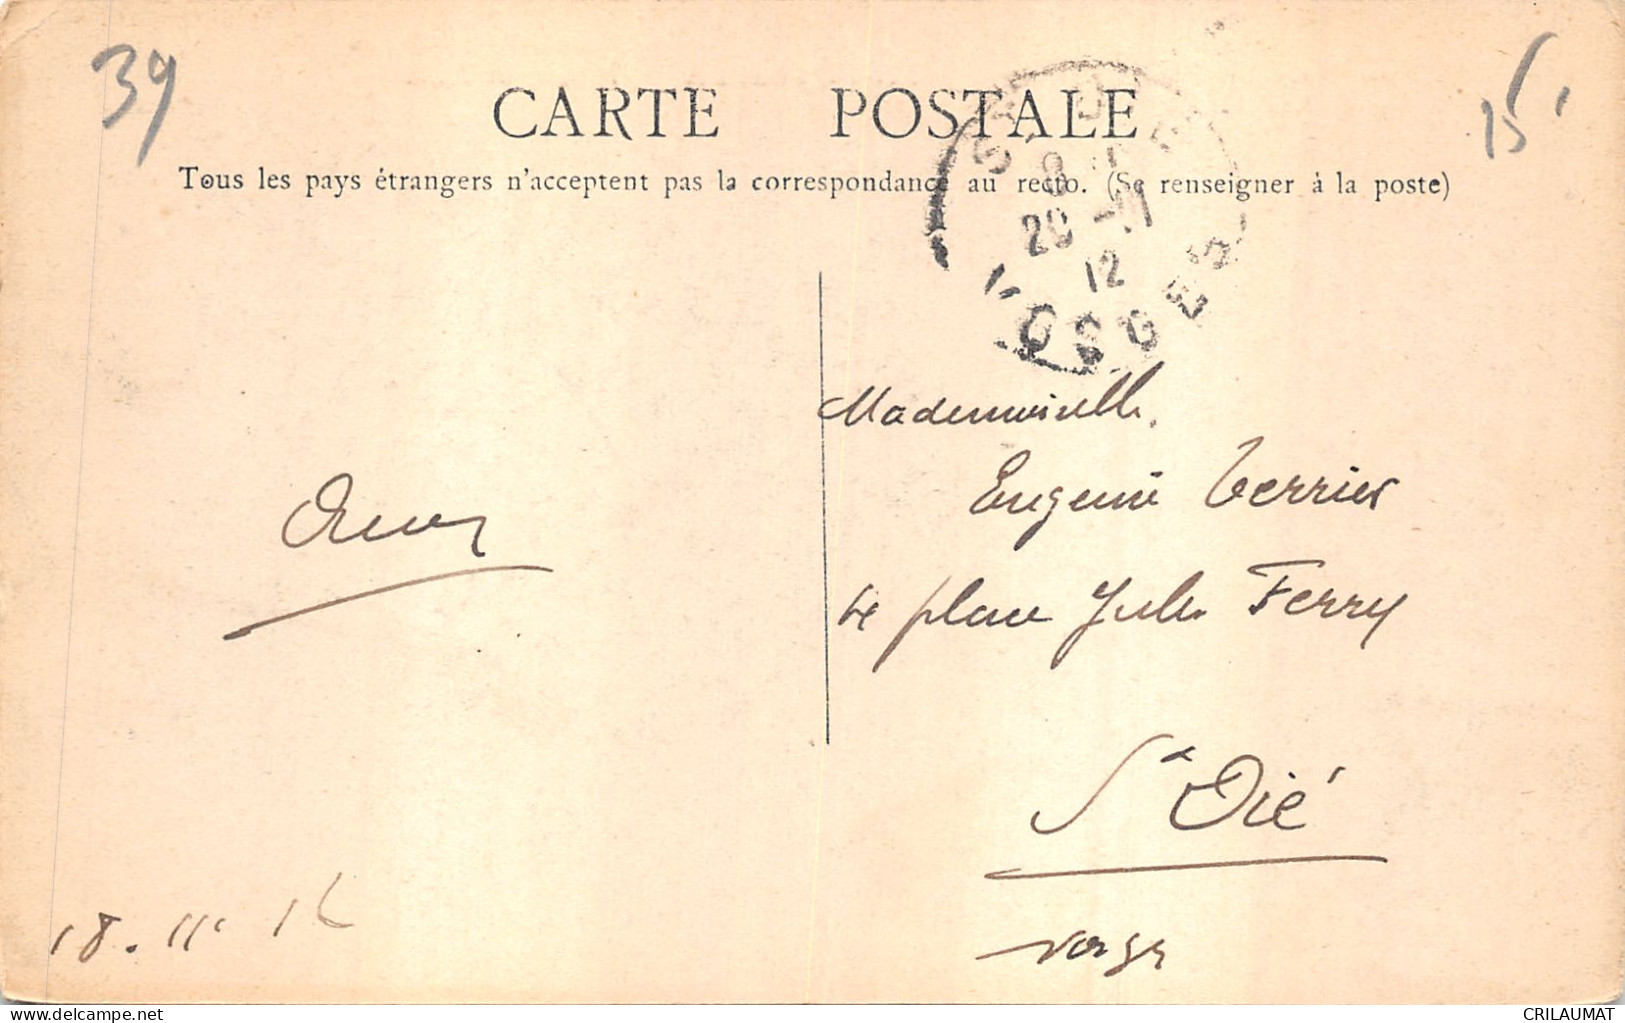 39
15
CARTE POSTALE
Tous les pays étrangers n'acceptent pas la correspondance au recto. (Se renseigner à la poste)
20 -11
12
VOSGES
Mademoiselle
Eugenie Terrier
4 place Jules Ferry
St Dié
Vosges
18. 11. 12
CRILAUMAT